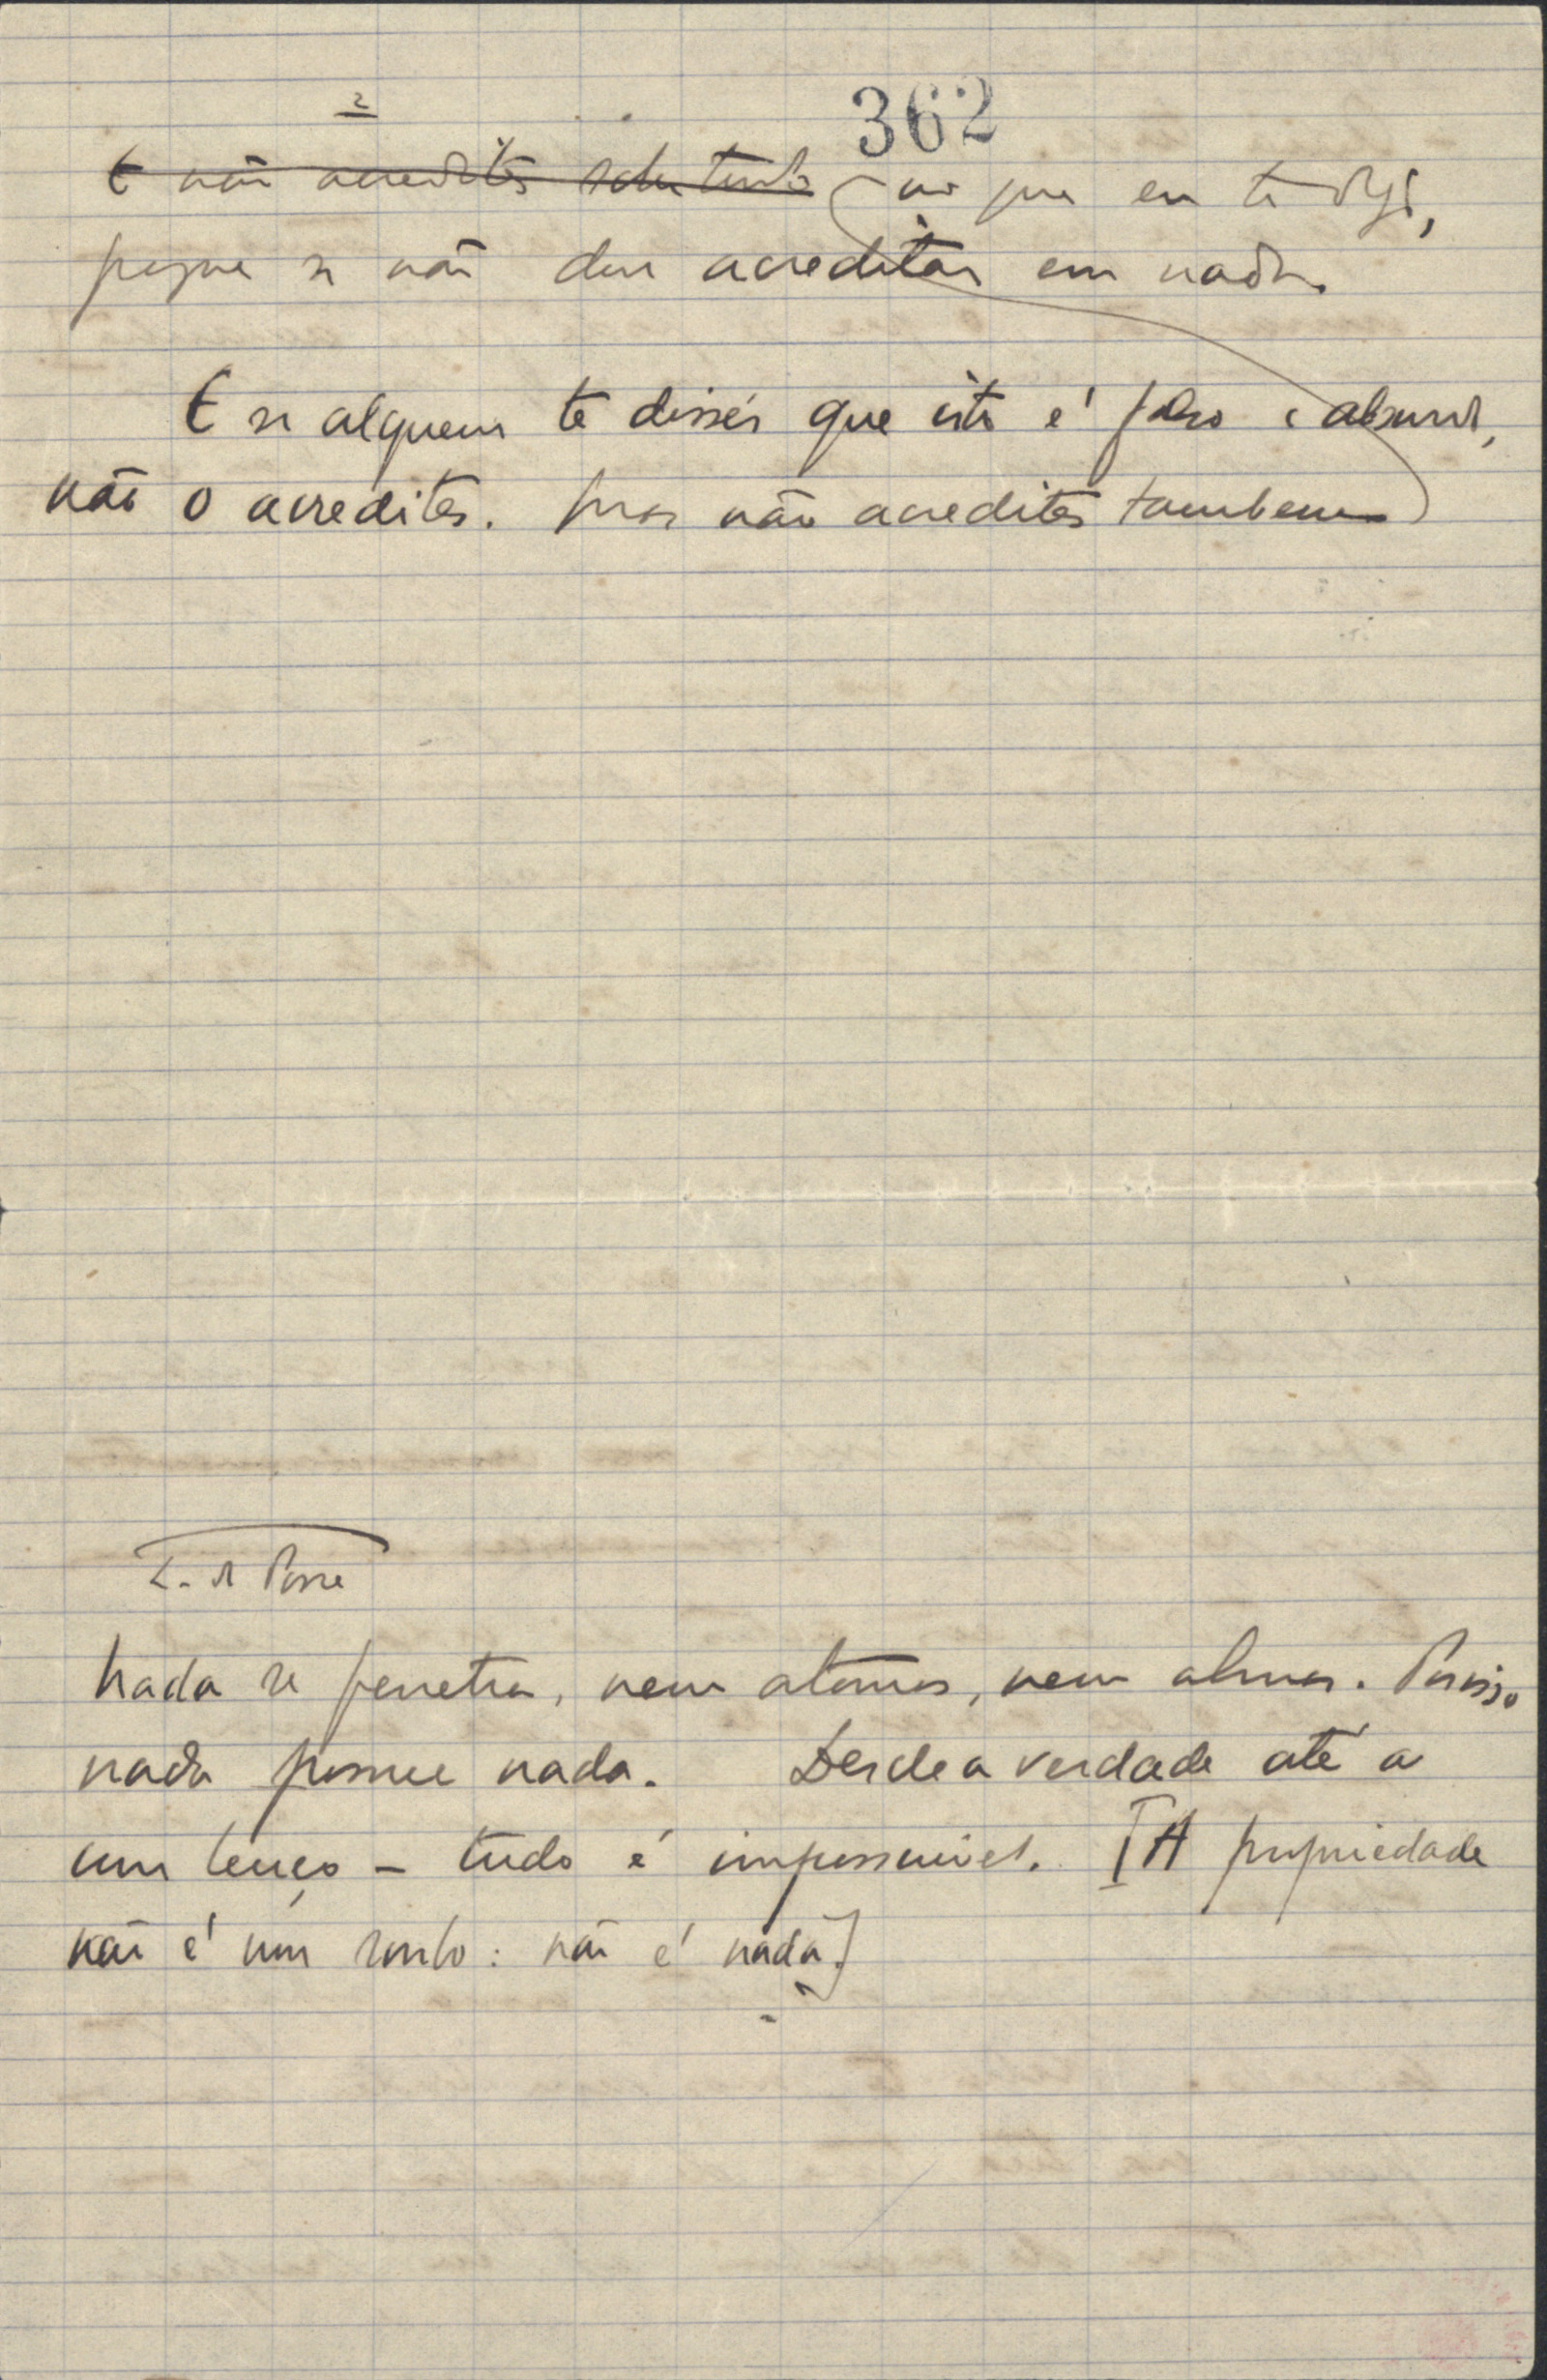 2
362
E não acredites sobretudo no que eu te digo,
porque se não deve acreditar em nada.
E se alguem te disser que isto é falso e absurdo,
não o acredites. Mas não acredites tambem
L. d. Posse
Nada se penetra, nem atomos, nem almas. Porisso
nada possue nada. Desde a verdade até a
um lenço – tudo é impossuivel. [A propriedade
não é um roubo: não é nada.]